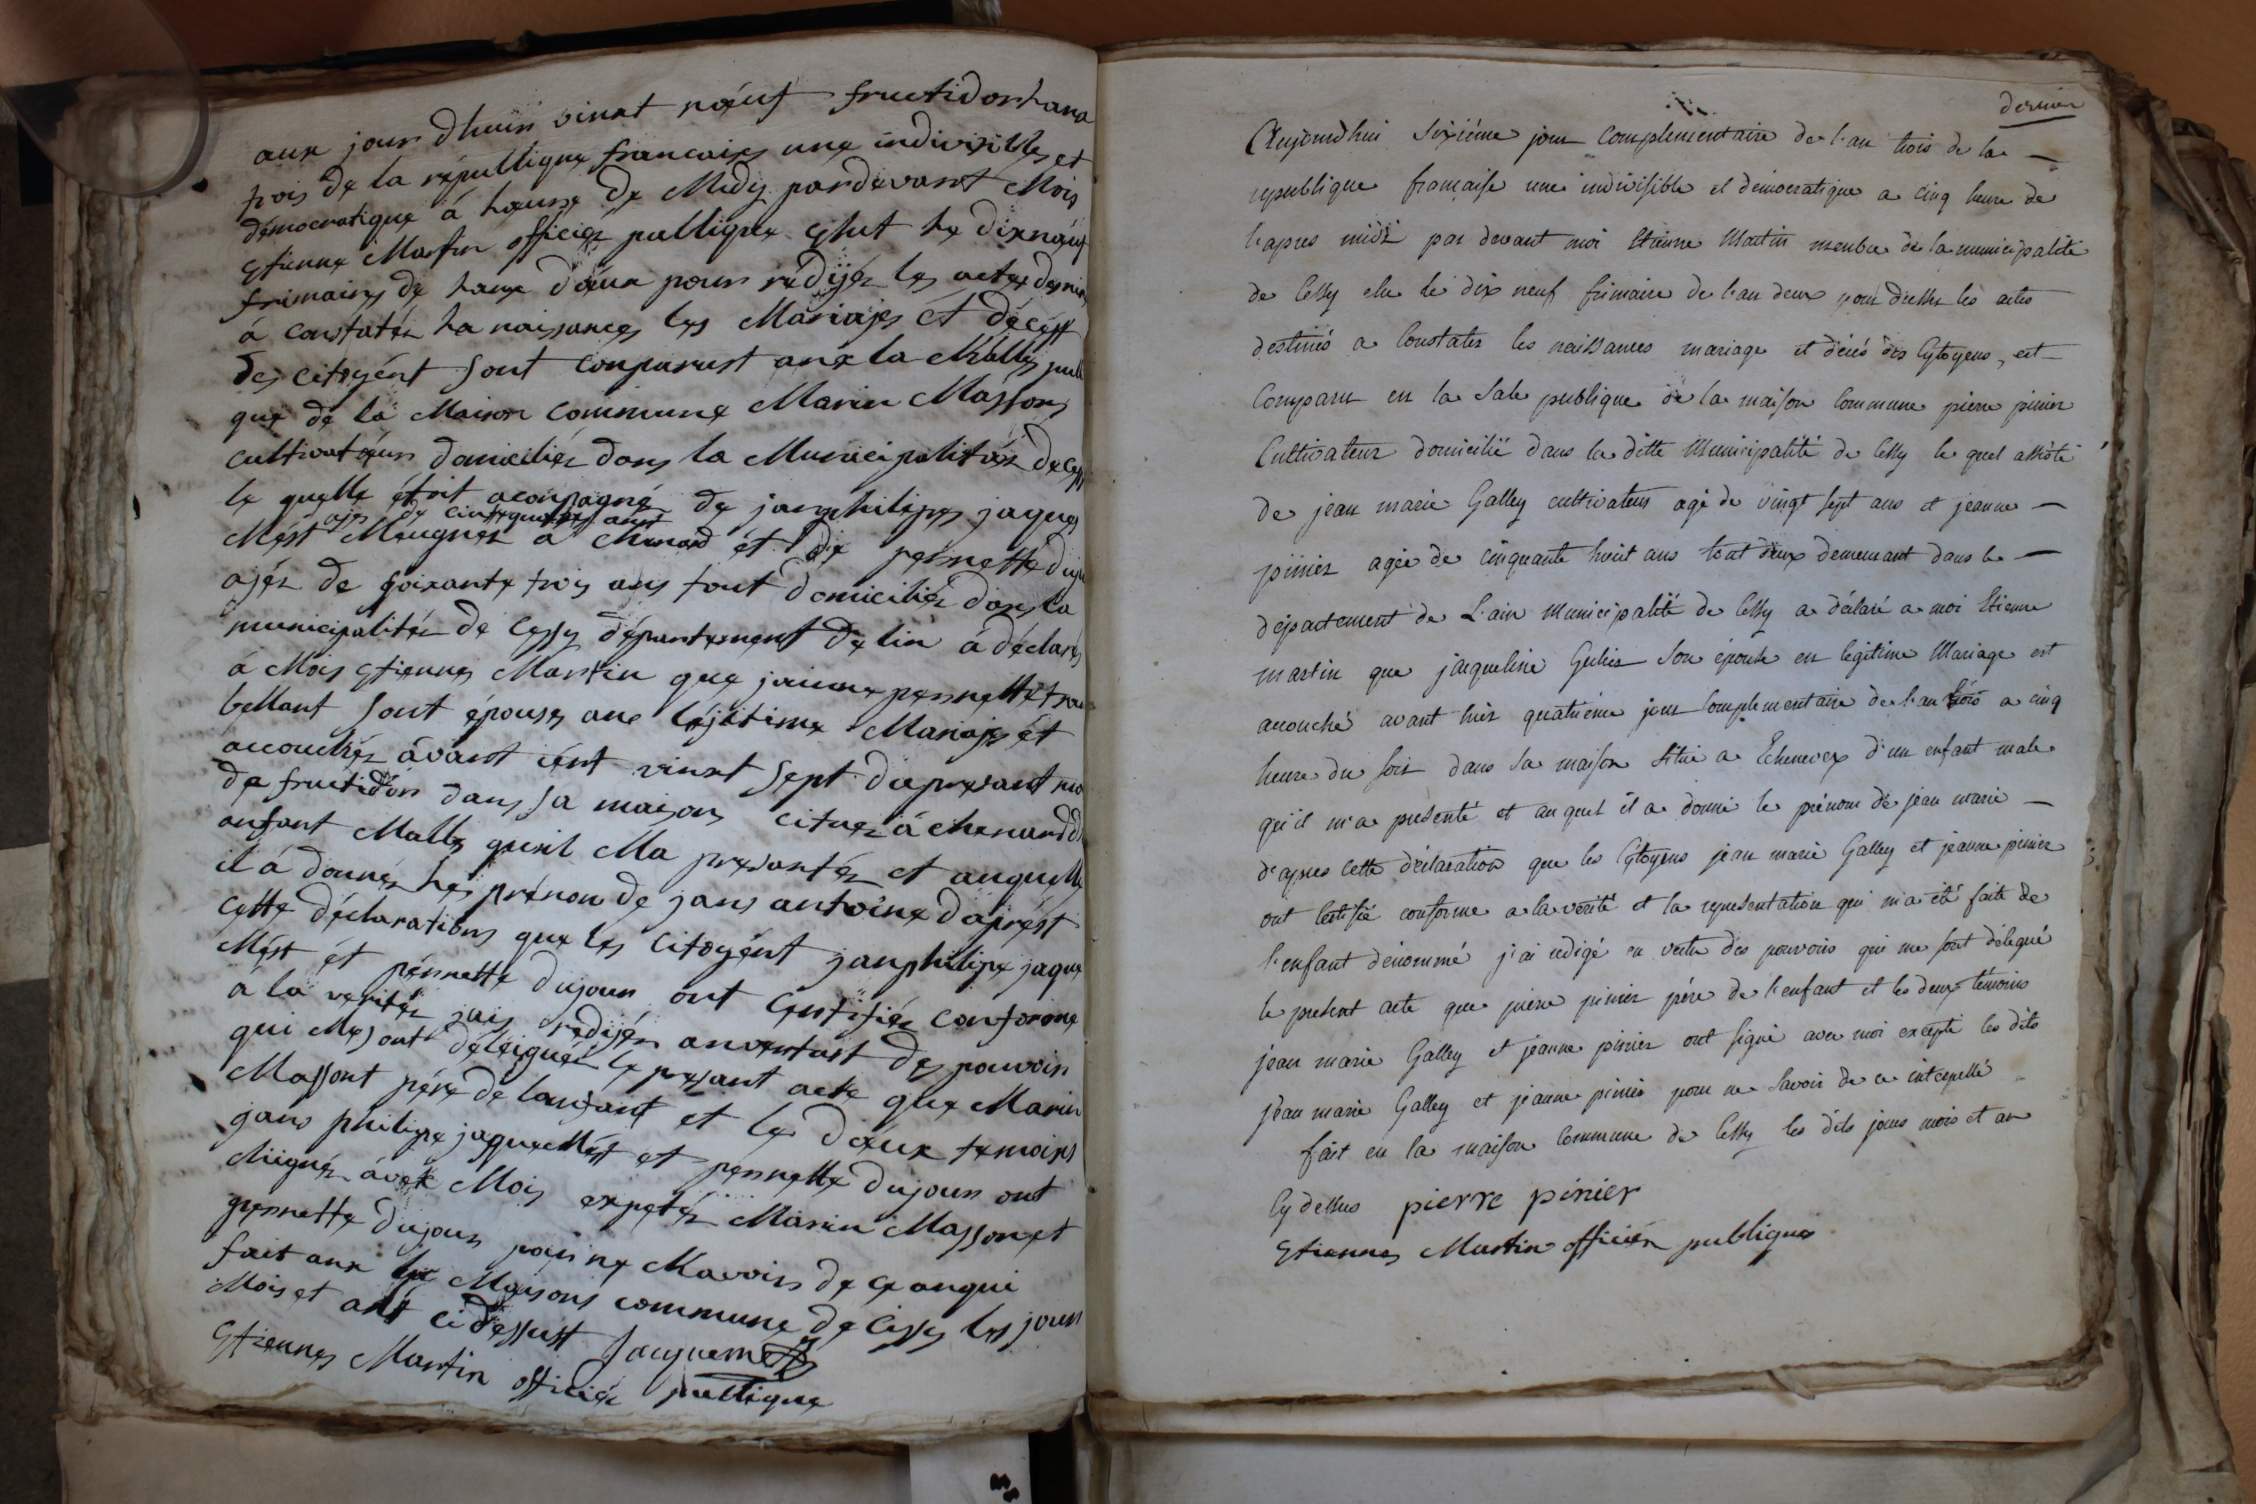 aux jour dhuis vinxt nœuf fructidor hana
trois de la république francaises une indivisibles et
démocratique á hœure de Midy pardevant Mois
Etienne Martin officiér publique eslut he dixnœuf
frimaires de hanx dœux pour rédijér les actes destines
á constatér ha naissances les Mariajes et décést
des citoyént sont comparust anx la Malles publi
que de la Maison commune Marin Massons
cultivatœurs domiciliér dans la Municipalitées de Cess
le quelle étoit acompagné de janphilipes jaques
ajes de cinxquantes ans
Mést Meugnér a chenard et de pernette dujou
ajér de soixante trois ans tout domiciliér dans la
municipalitér de Cessy département de lin á déclarés
á Mois Etiennes Martin que jeanne pernette tra
bellant sont épouses anc léjitime Mariajes ét
accouchés ávant iért vinxt sept du presant mo
de fructidor dans sa maisons cituéz á chenard d
anfant Malle qu'il Ma presantér et auquelle
il á donnér hes prénon de jans antoine daprést
cette déclarations que les citoyént janphilipe jaque
Mést et pérnette dujour ont certifiér conforme
á la veritér jais redijér anvertust des pouvoir
qui Mesont déléiguér le presant acte que Marin
Massont pére de lanfant et le dœux temoins
jans philipe jaquemést et pernette dujour ont
Miignér ávéx Mois exeptér Marin Masson et
pernette dujour pour ne Mavoir de ce anqui
fait anx la Maisons commune de Cessy les jour
Mois et ant cidessust Jacquemet
Etiennes Martin officiér publique
dernier
Aujourdhui sixiéme jour complementaire de l'an trois de la
republique française une indivisible et démocratique a cinq heure de
l'apres midi par devant moi Etienne Martin membre de la municipalité
de Cessy elu le dix neuf frimaire de l'an deux pour dresser les actes
destinés a Constater les naissances mariage et décés des Cytoyens, est
Comparu en la Sale publique de la maison Commune pierre pinier
Cultivateur domicilié dans la ditte Municipalité de Cessy le quel assisté
de jean marie Galley cultivateur agé de vingt sept ans et jeanne
pinier agée de cinquante huit ans tout deux demeurant dans le
département de L'ain Municipalité de Cessy a déclaré a moi Etienne
martin que jacqueline son épouse en legitime Mariage est
acouché avant hier quatriéme jour Complementaire de l'an trois a cinq
heure du soir dans sa maison située a Echenevex d'un enfant male
qu'il m'a presenté et au quel il a donné le prénom de jean marie
d'apres cette déclaration que les Cytoyens jean marie Galley et jeanne pinier
ont certifié conforme a la verité et la representation qui m'a été faite de
l'enfant dénommé j'ai redigé en vertu des pouvoirs qui me sont délegué
le present acte que pierre pinier pére de l'enfant et les deux témoins
jean marie Galley et jeanne pinier ont signé avec moi excepté les dits
jean marie Galley et jeanne pinier pour ne Savoir de ce interpellé
fait en la maison Commune de Cessy les dits jours mois et an
Cy dessus pierre pinier
Etiennes Martin officiér publique